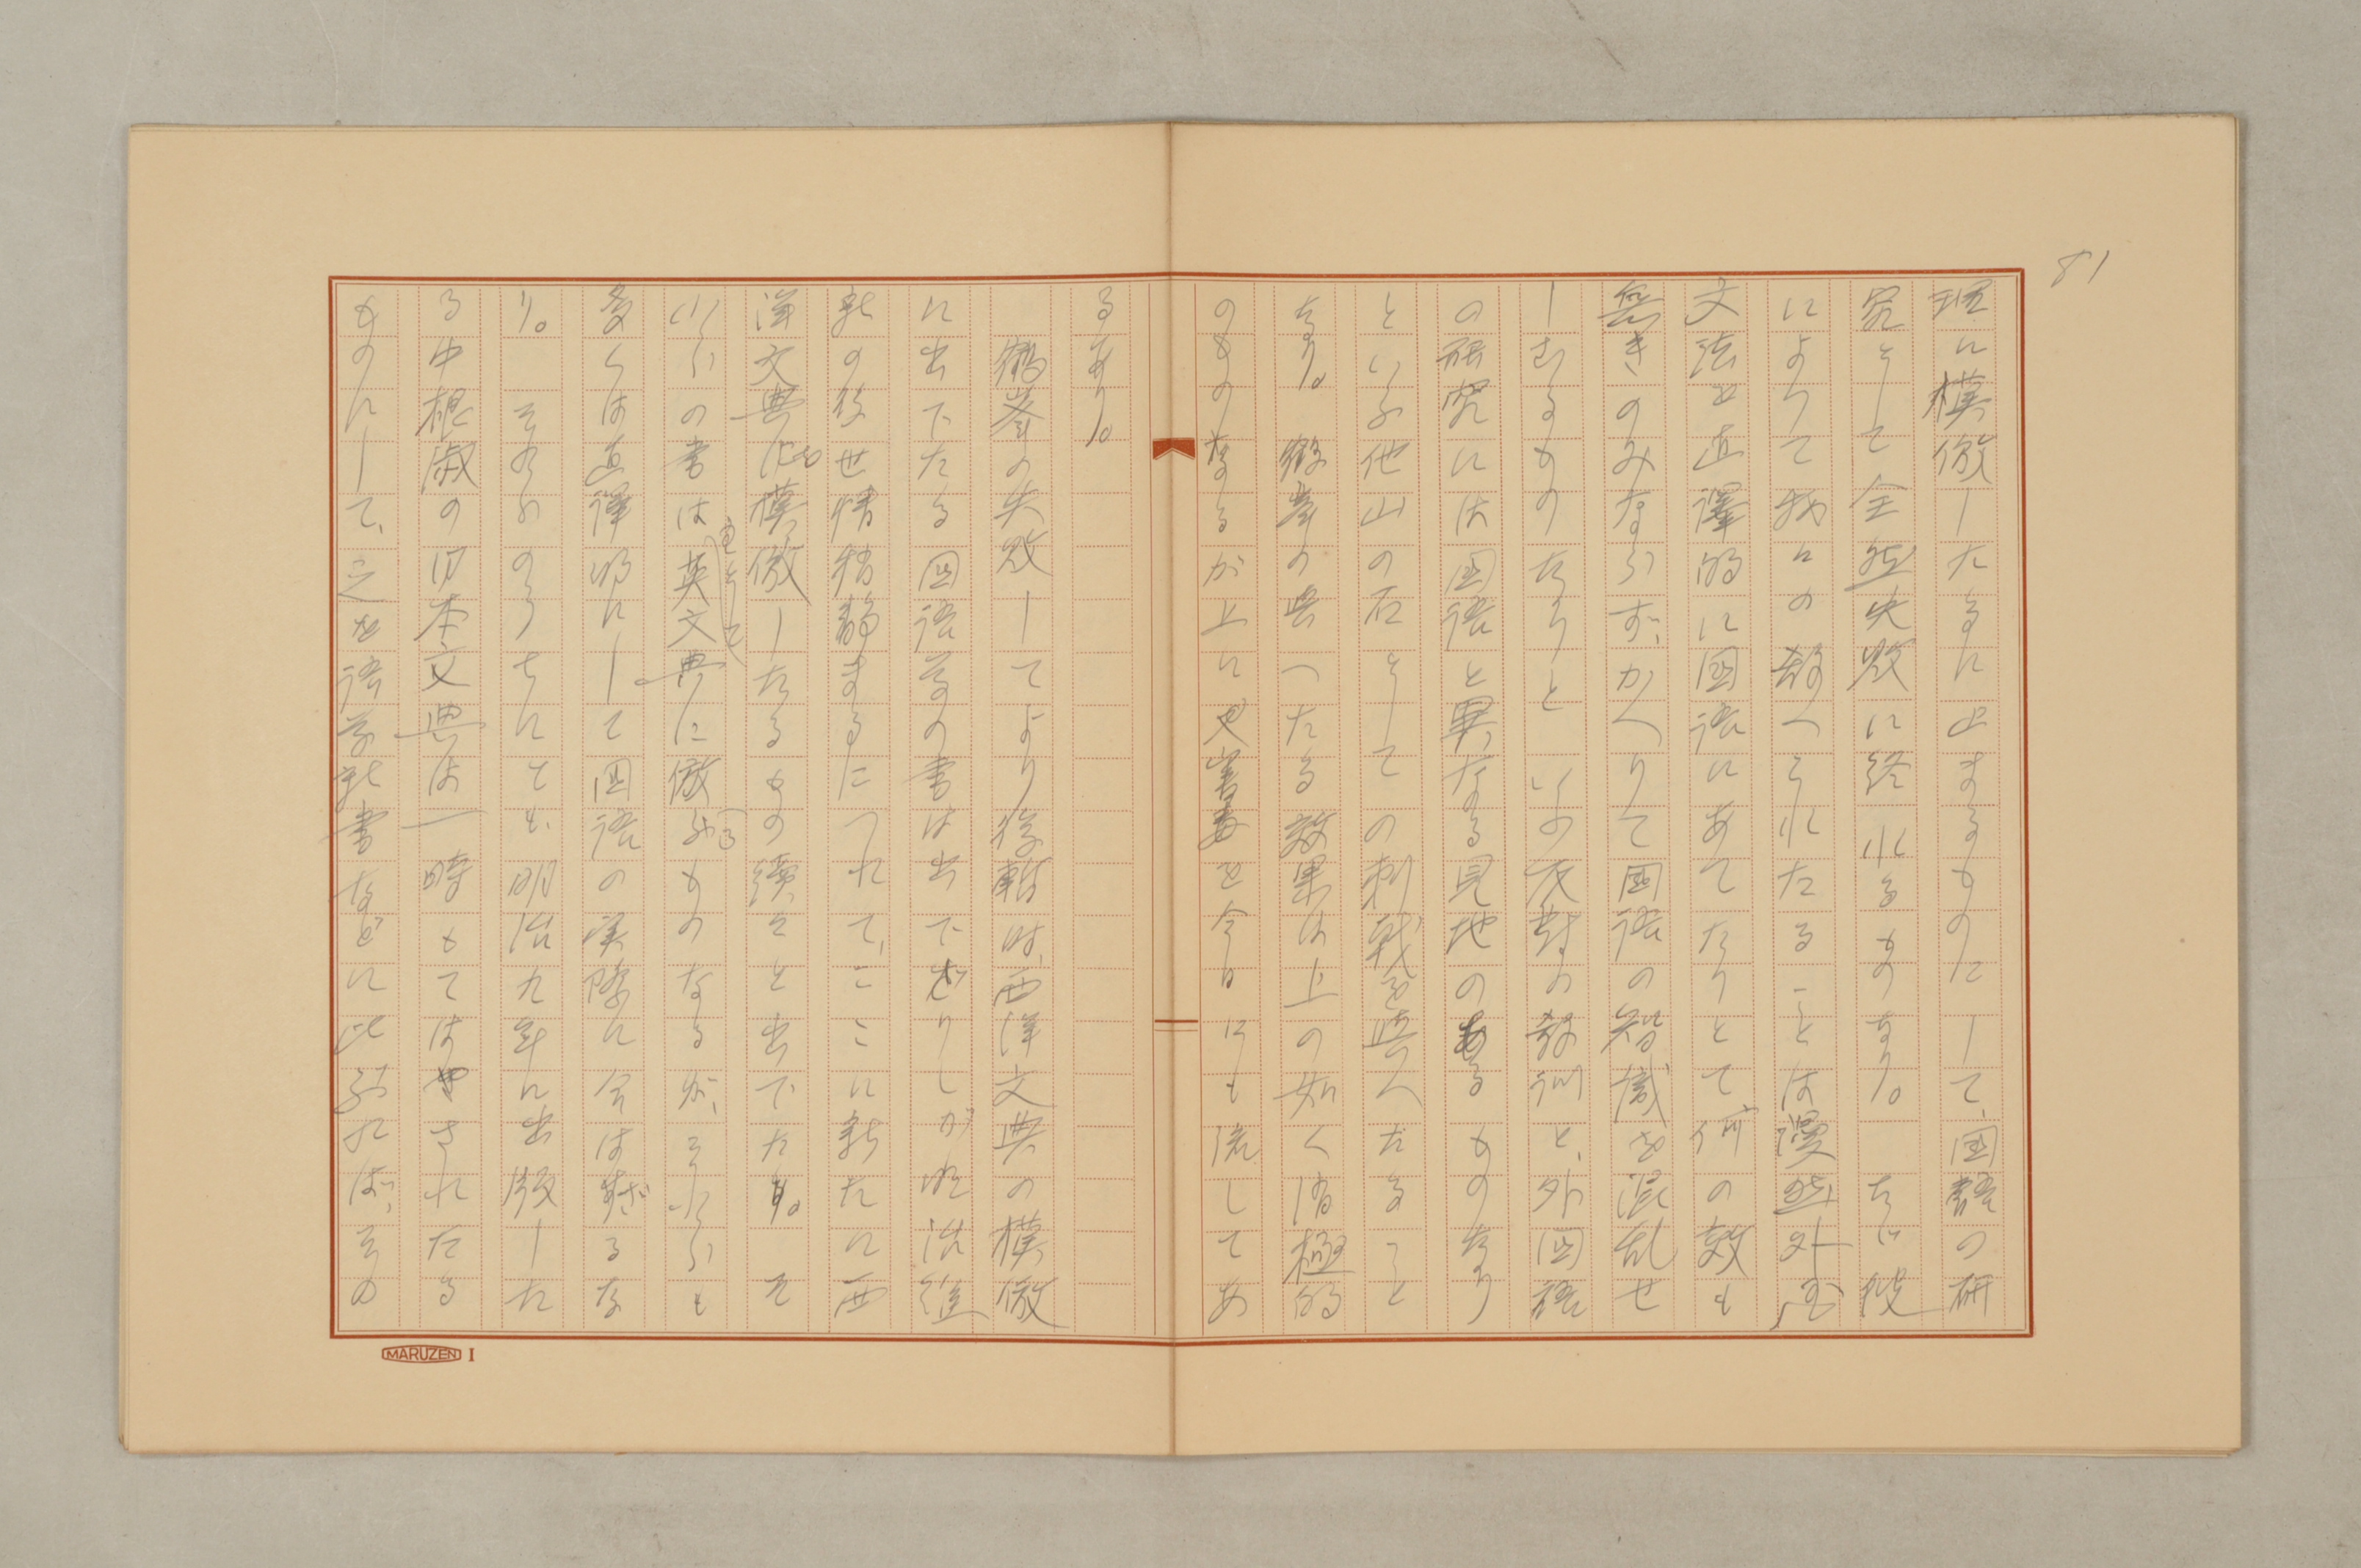 81
理に模倣したるに止まるものにして、国語の研
究としては全然失敗に終れるものなり。たゞ彼
によりて我々の教へられたることは漫然外国
文法を直譯的に國語にあてたりとて何の效も
無きのみならず、かへりて国語の智識を混乱せ
しむるものなりといふ反對の教訓と、外国語
の研究には国語と異なる見地のあるものなり
といふ他山の石としての刺戟を與へたること
なり。鶴峯の與へたる效果は上の如く消極的
のものなるが上に又害毒を今日にも流してあ
るなり。
鶴峯の失敗してより後暫時、西洋文典の模倣
に出でたる国語学の書は出でざりしが明治維
新の後世情稍静まるにつれて、ここに新たに西
洋文典を模倣したるもの續々と出でたり。そ
れらの書は主として英文典に倣へるものなるが、それらも
多くは直譯的にして国語の実際に合はざるな
り。それらのうちにても、明治九年に出版した
る中根淑の日本文典は一時もてはやされたる
ものにして、之を語学新書などに比ぶれば、その
MARUZEN I